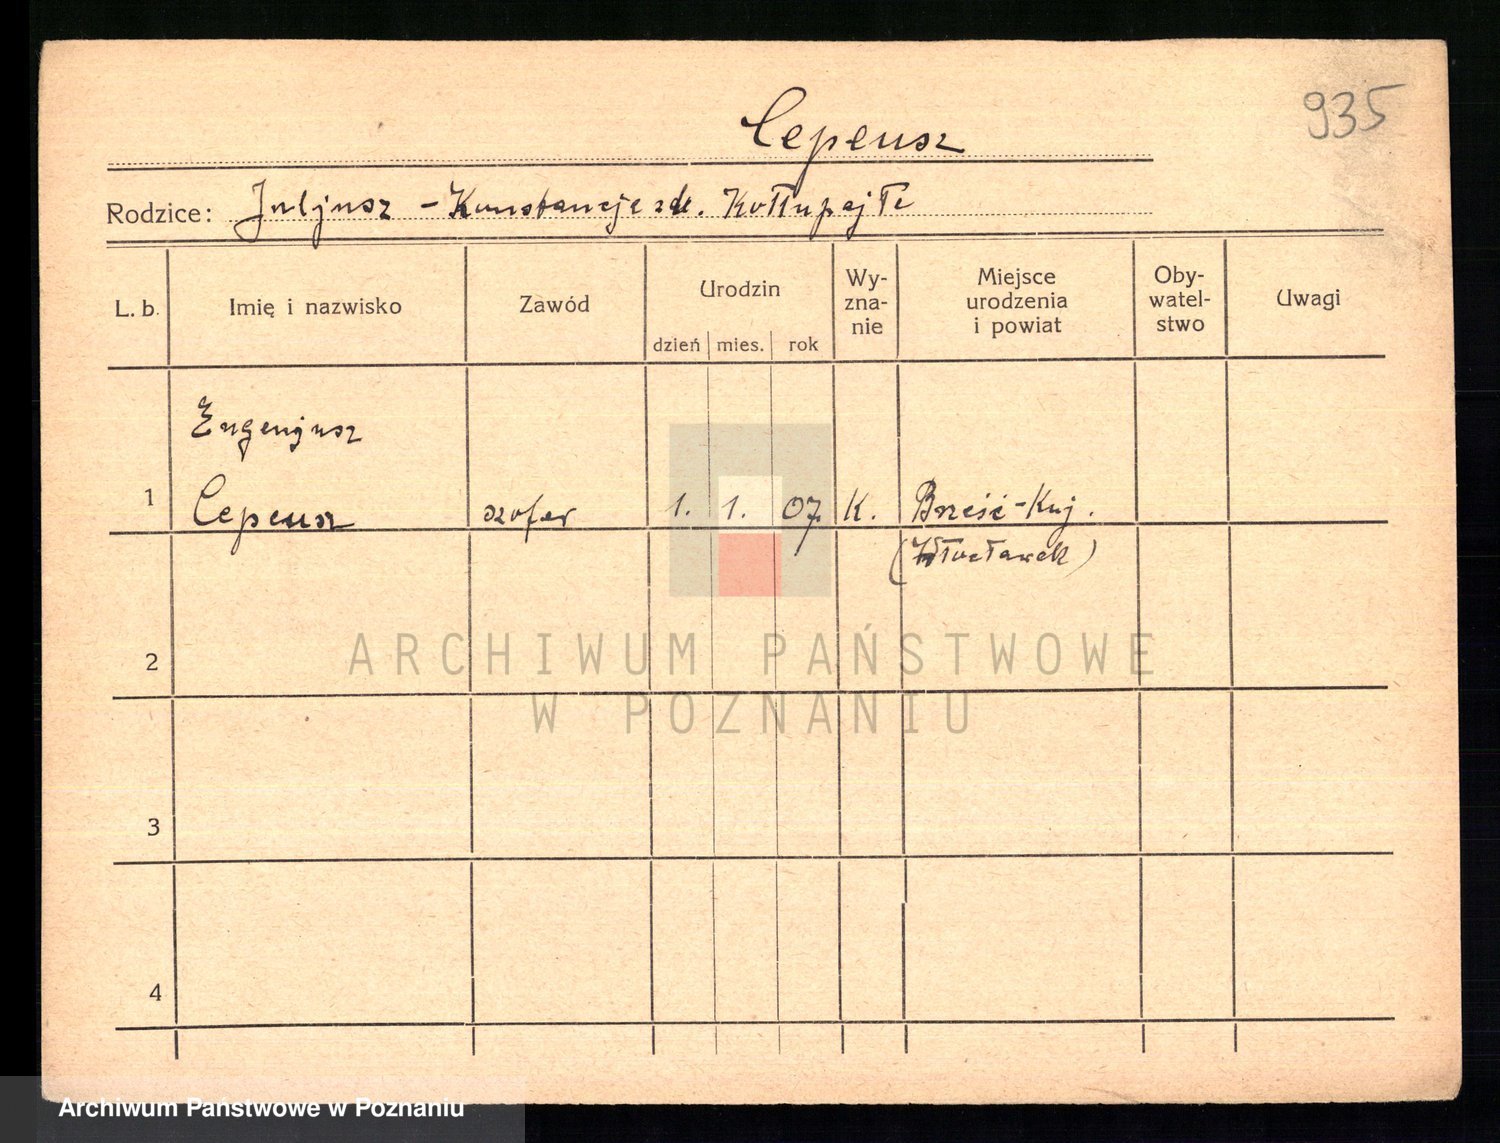 935
Cepeusz
Rodzice: Juljusz - Konstancje zd. Kołłupajłe
L. b. Imię i nazwisko Zawód Urodzin dzień mies. rok Wy-zna-nie Miejsce urodzenia i powiat Oby-watel-stwo Uwagi
Eugenjusz
1 Cepeusz szofer 1. 1. 07. K. Brześć-Kuj.
(Włocławek)
2
ARCHIWUM PAŃSTWOWE
W POZNANIU
3
4
Archiwum Państwowe w Poznaniu